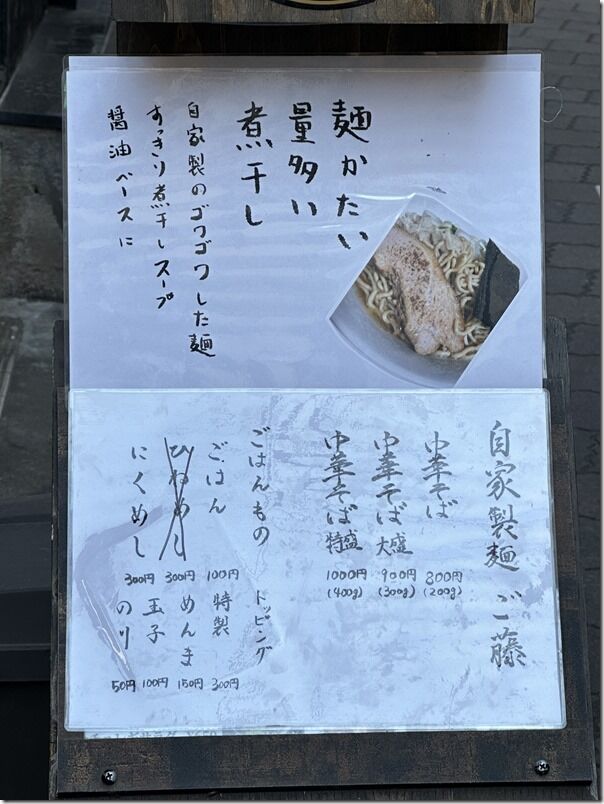 麺かたい
量多い
煮干し
自家製のゴワゴワした麺
すっきり煮干しスープ
醤油ベースに
自家製麺 ご藤
中華そば 800円 (200g)
中華そば 大盛 900円 (300g)
中華そば 特盛 1000円 (400g)
ごはんもの
ごはん 100円
300円
にくめし 300円
トッピング
特製 300円
めんま 150円
玉子 100円
のり 50円